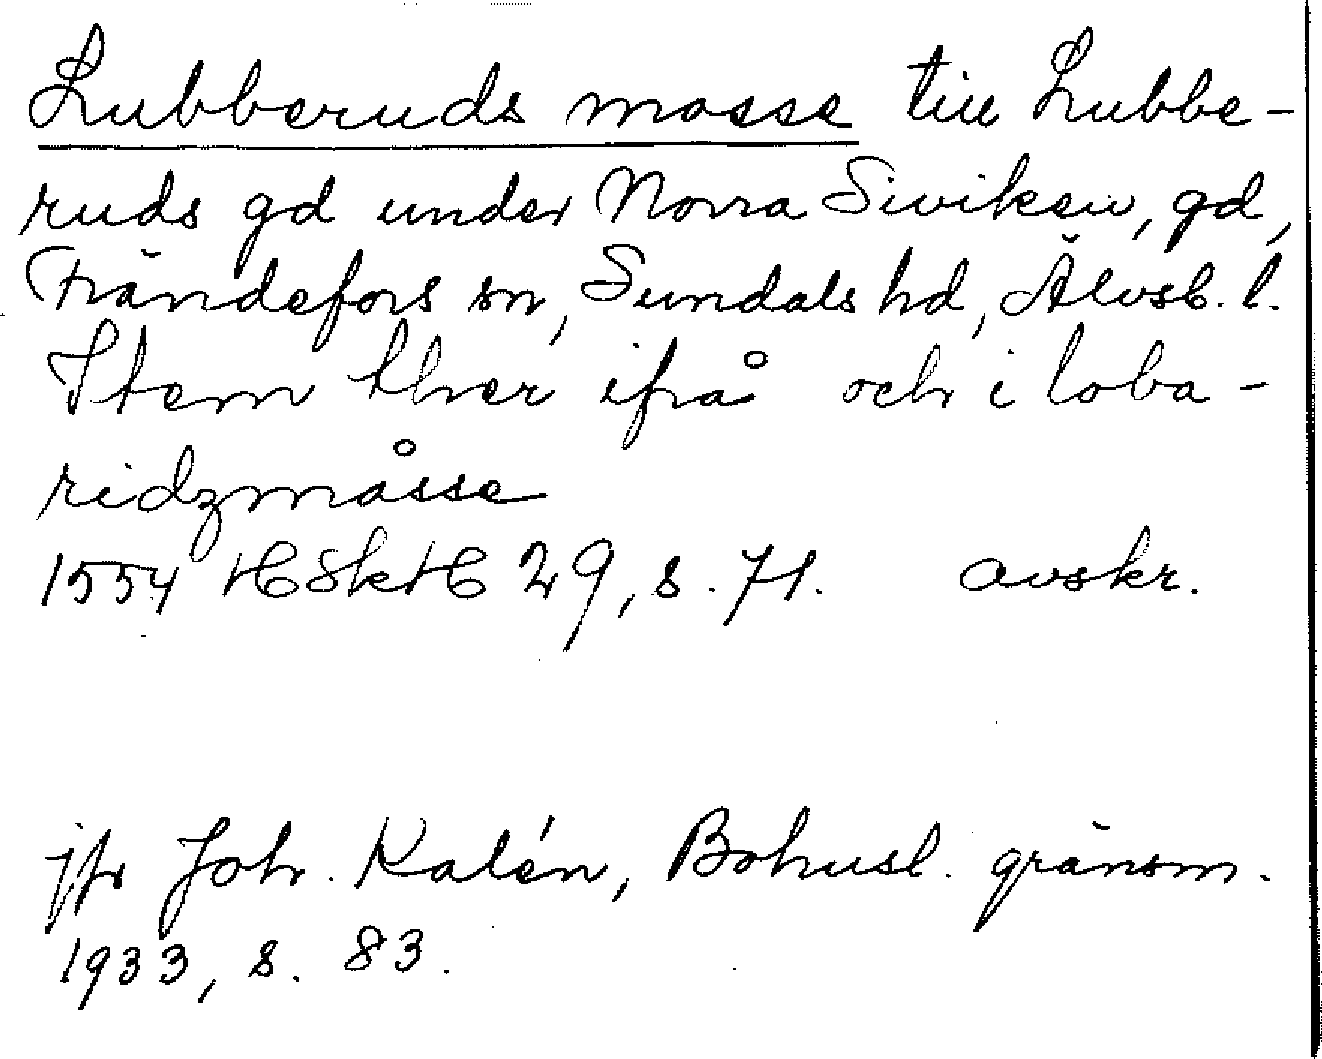 Lubberuds mosse till Lubbe-
ruds gd under Norra Siviken, gd,
Frändefors sn, Sundals hd, Älvsb. l.
Item ther ifrå och i loba-
ridzmåsse
1554 HSkH 29, s. 71. avskr.
jfr Joh. Kalén, Bohusl. gränsm.
1933, s. 83.